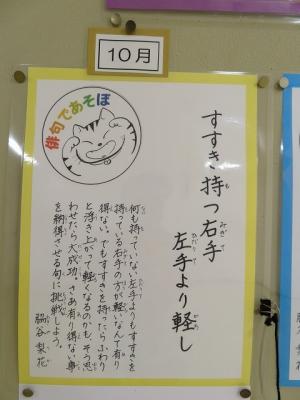 10月
俳句であそぼ
すすき持つ右手
左手より軽し
何も持っていない左手よりもすすきを
持っている右手の方が軽いなんて有り
得ない。でもすすきを持ったらふわり
と浮き上がって軽くなるのかも、そう思
わせたら大成功。さあ有り得ない事
を納得させる句に挑戦しよう。
脇谷梨花